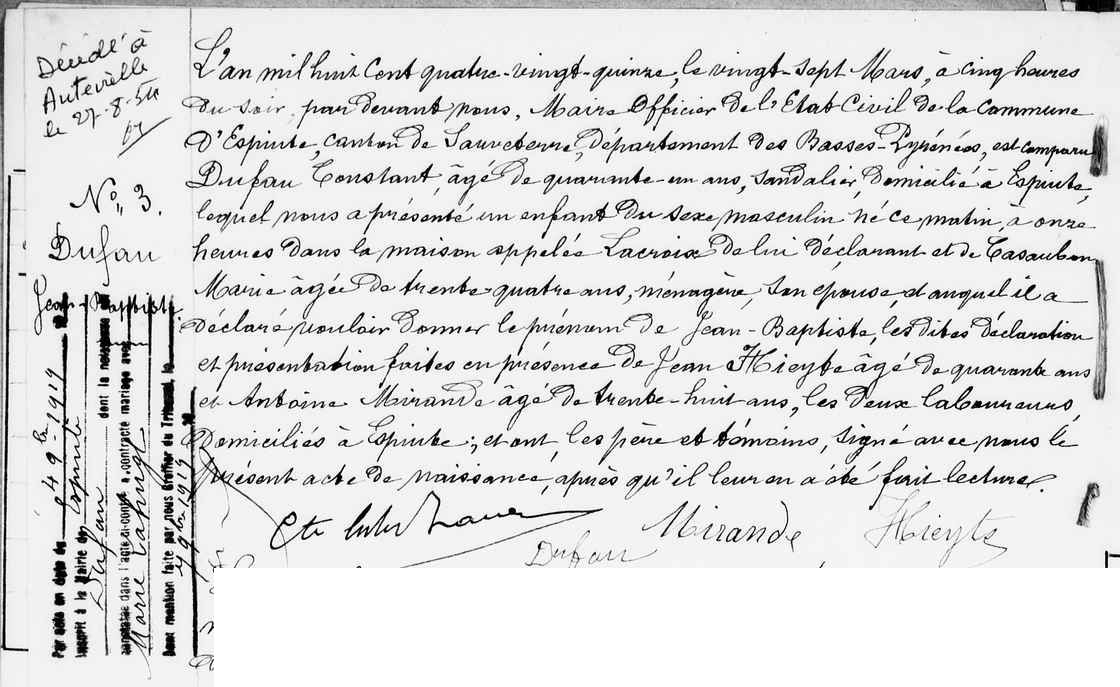 Décédé à
Autevielle
le 27-8-54
N° 3.
Dufau
Jean-Baptiste
L'an mil huit cent quatre-vingt-quinze, le vingt-sept Mars, à cinq heures
du soir, par devant nous, Maire Officier de l'Etat Civil de la commune
d'Espiute, canton de Sauveterre, département des Basses-Pyrénées, est comparu
Dufau Constant, âgé de quarante-un ans, sandalier, domicilié à Espiute,
lequel nous a présenté un enfant du sexe masculin né ce matin, à onze
heures dans la maison appelée Lacroix de lui déclarant et de Casaubon
Marie âgée de trente-quatre ans, ménagère, son épouse, et auquel il a
déclaré vouloir donner le prénom de Jean-Baptiste, les dites déclaration
et présentation faites en présence de Jean Hieyte âgé de quarante ans
et Antoine Mirande âgé de trente-huit ans, les deux laboureurs,
domiciliés à Espiute; et ont les père et témoins, signé avec nous le
présent acte de naissance, après qu'il leur en a été fait lecture.
Mirande Hieyte
Dufau
Par acte en date du 1919
inscrit à la Mairie de Espiute
Dufau dont la naissance est
constatée dans l'acte ci-contre a contracté mariage avec
Marie
Dont mention faite par nous Greffier du Tribunal, le
9bre 1919